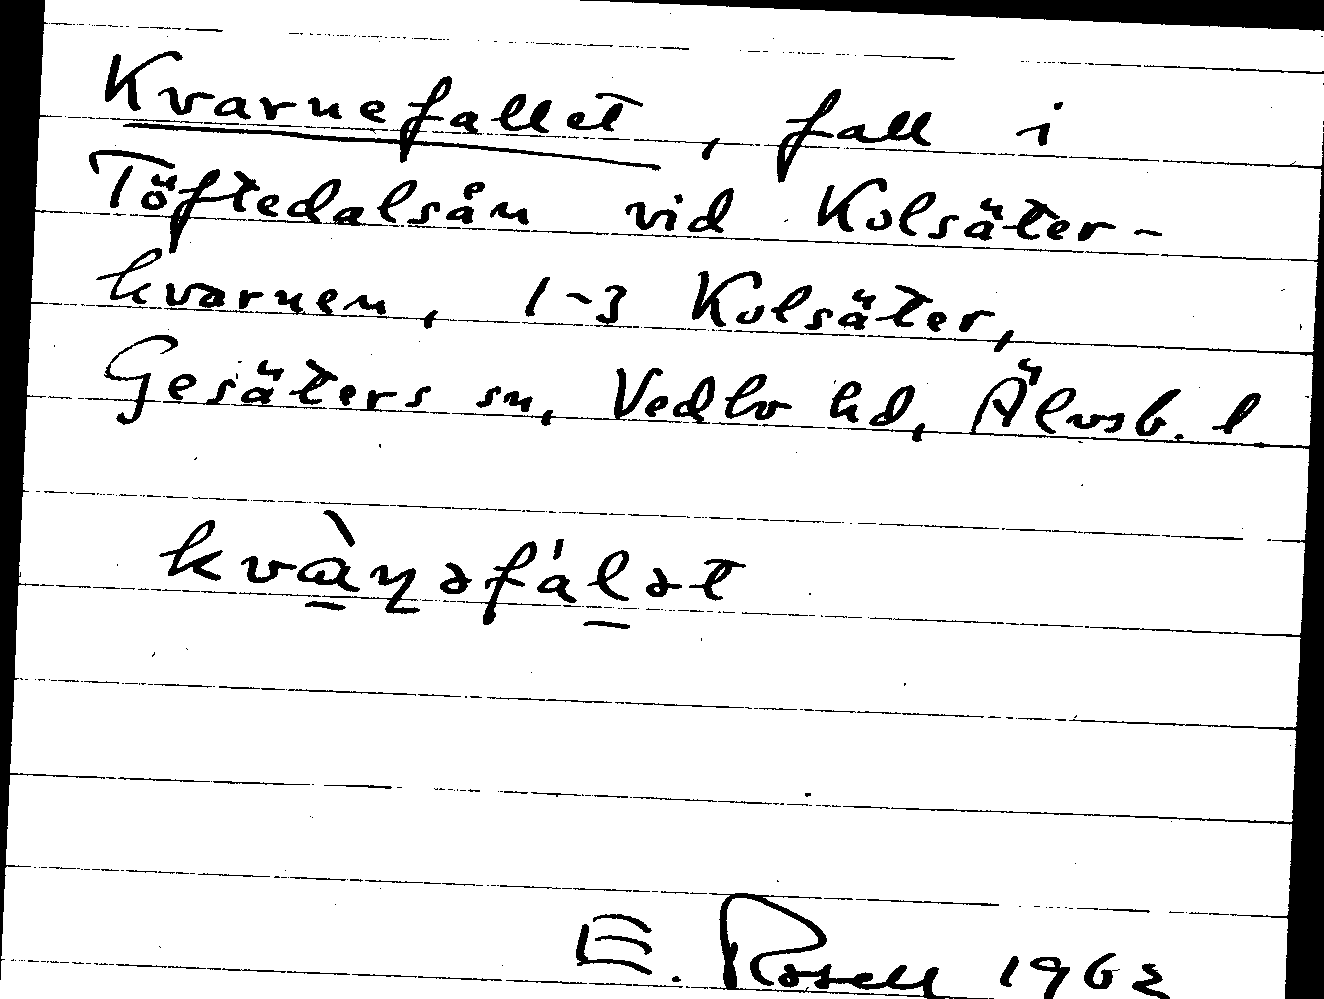 Kvarnefallet, fall i
Töftedalsån vid Kolsäter-
kvarnen, 1-3 Kolsäter,
Gesäters sn, Vedbo hd, Älvsb. l.
kvàɳəfálət
E. Rosell 1962